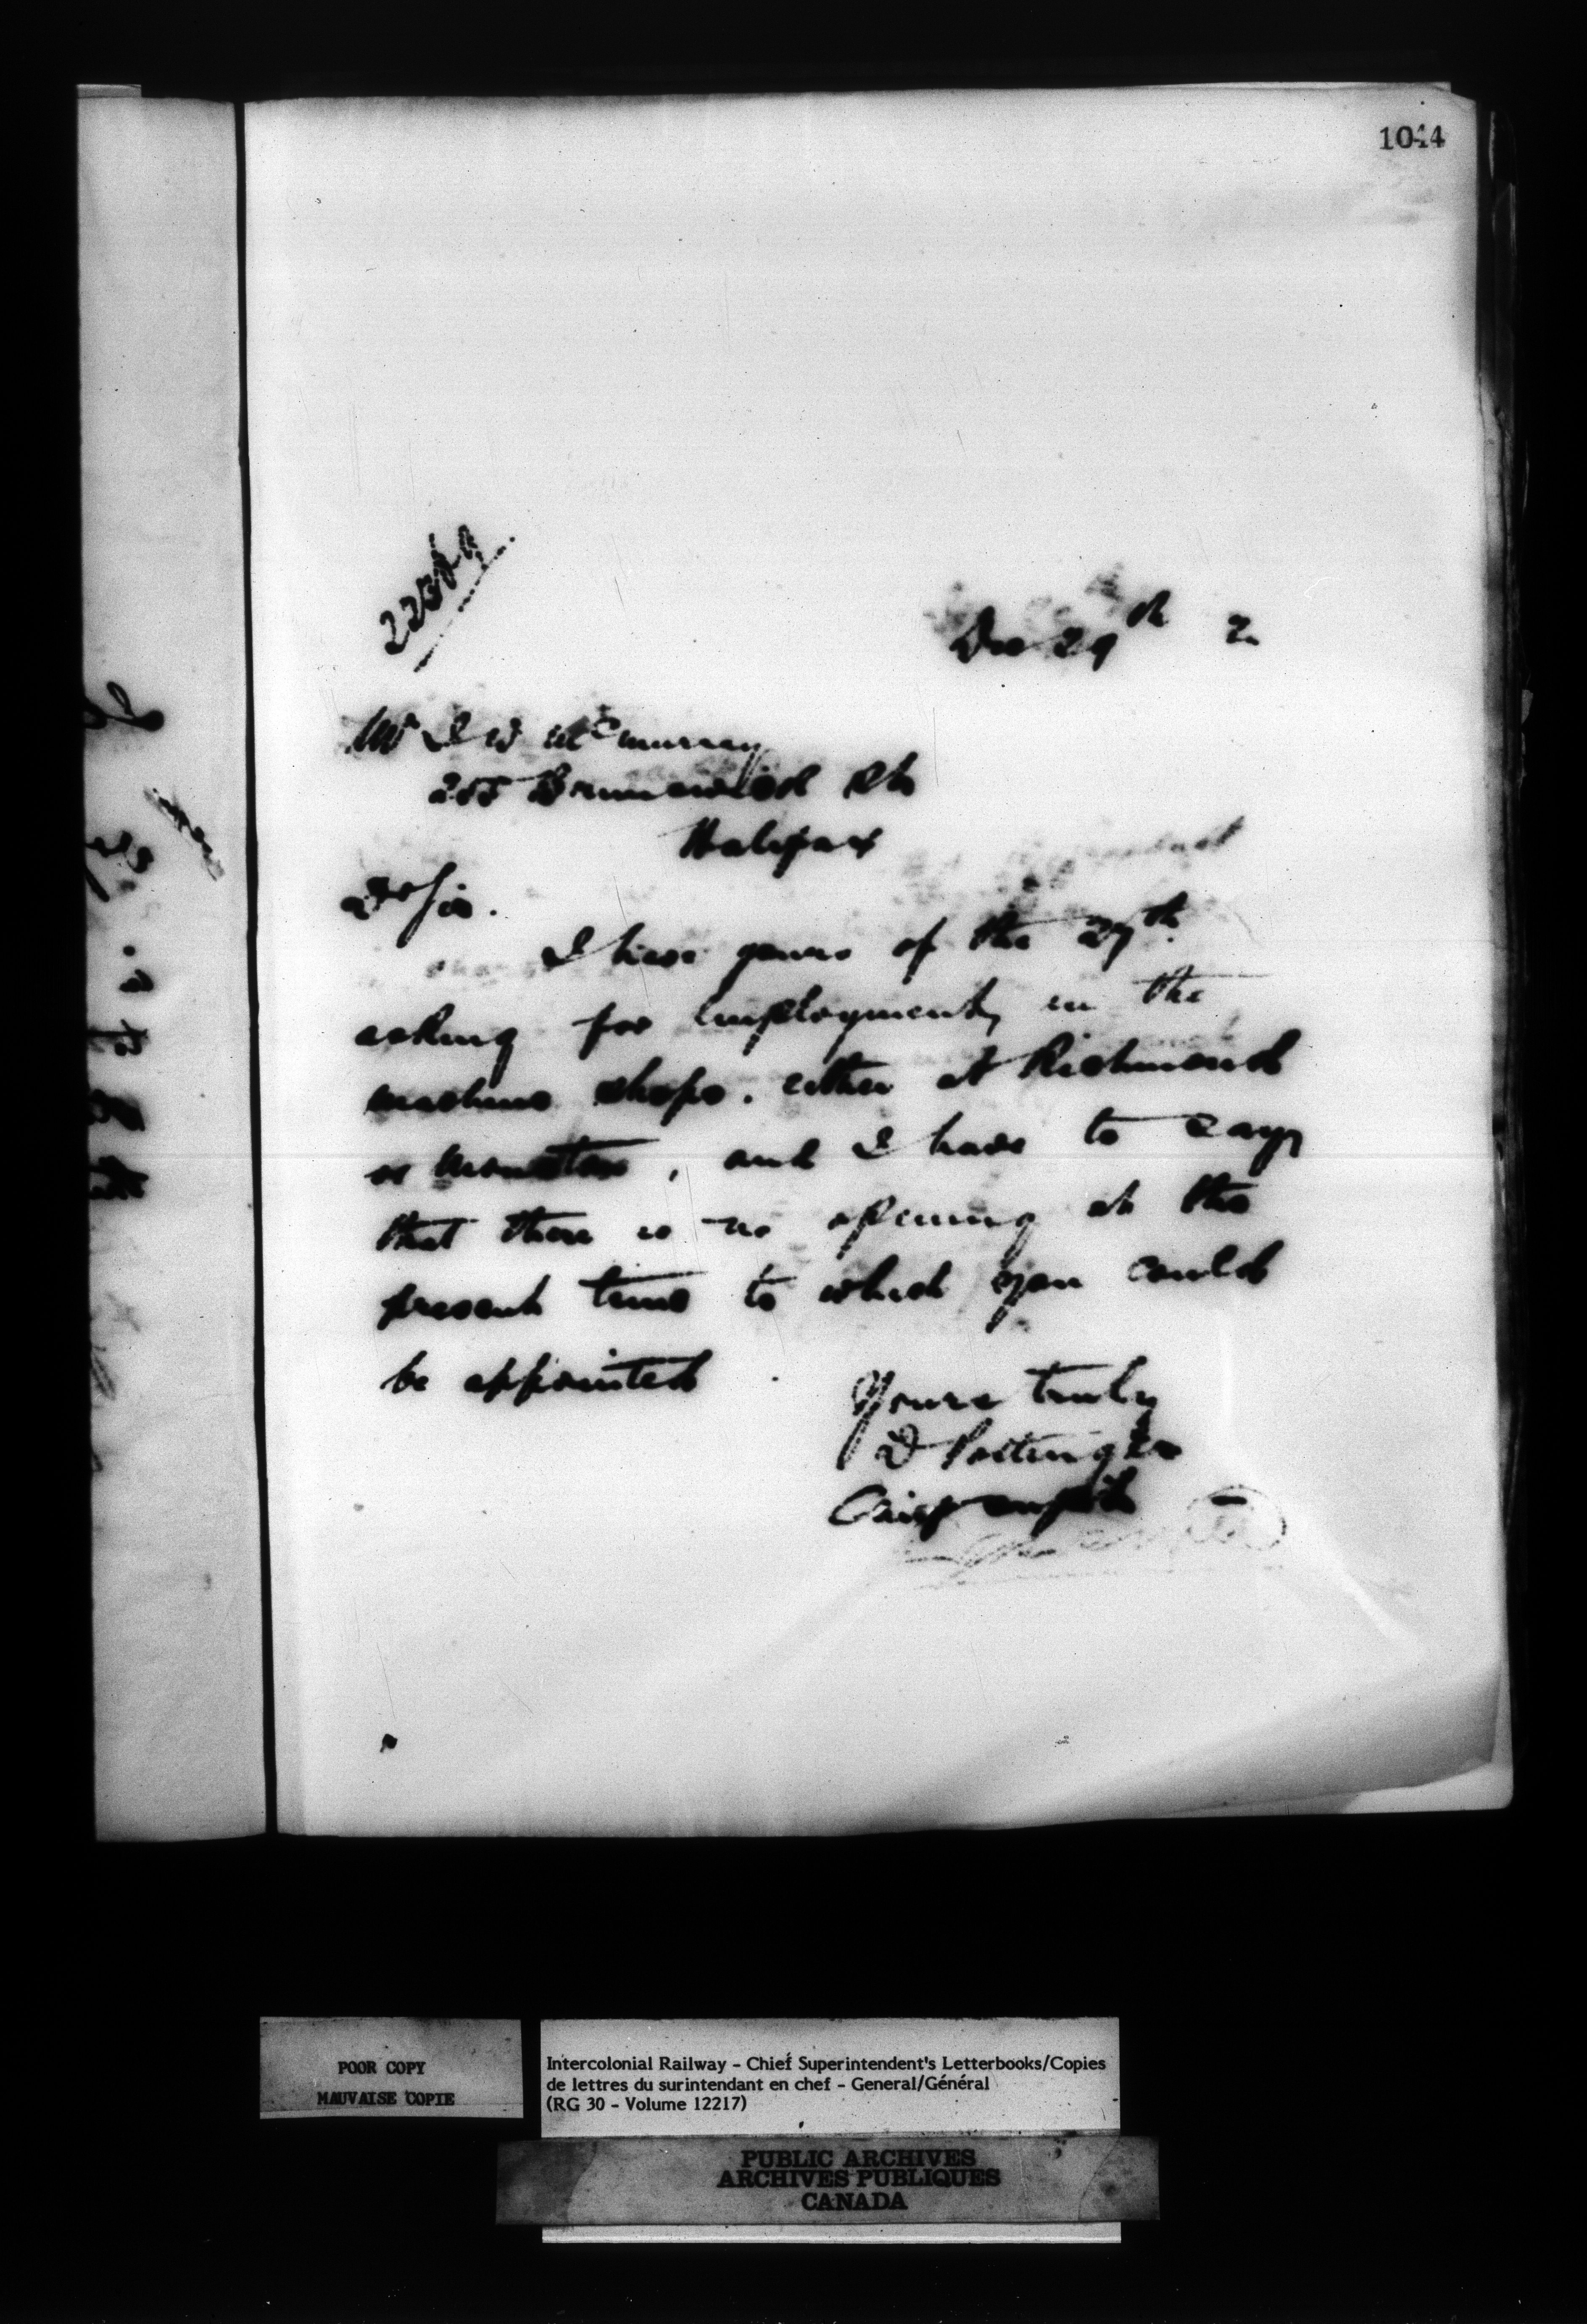 1044
Dec 29th 2
Mr I W McMurray
255 Brunswick St
Halifax
Dr Sir.
I have yours of the 27th
asking for employment, in the
machine shops. either at Richmond
or Moncton, and I have to say
that there is no opening at the
present time to which you could
be appointed.
Yours truly
D Pottinger
Chief Supdt
POOR COPY
MAUVAISE COPIE
Intercolonial Railway - Chief Superintendent's Letterbooks/Copies
de lettres du surintendant en chef - General/Général
(RG 30 - Volume 12217)
PUBLIC ARCHIVES
ARCHIVES PUBLIQUES
CANADA